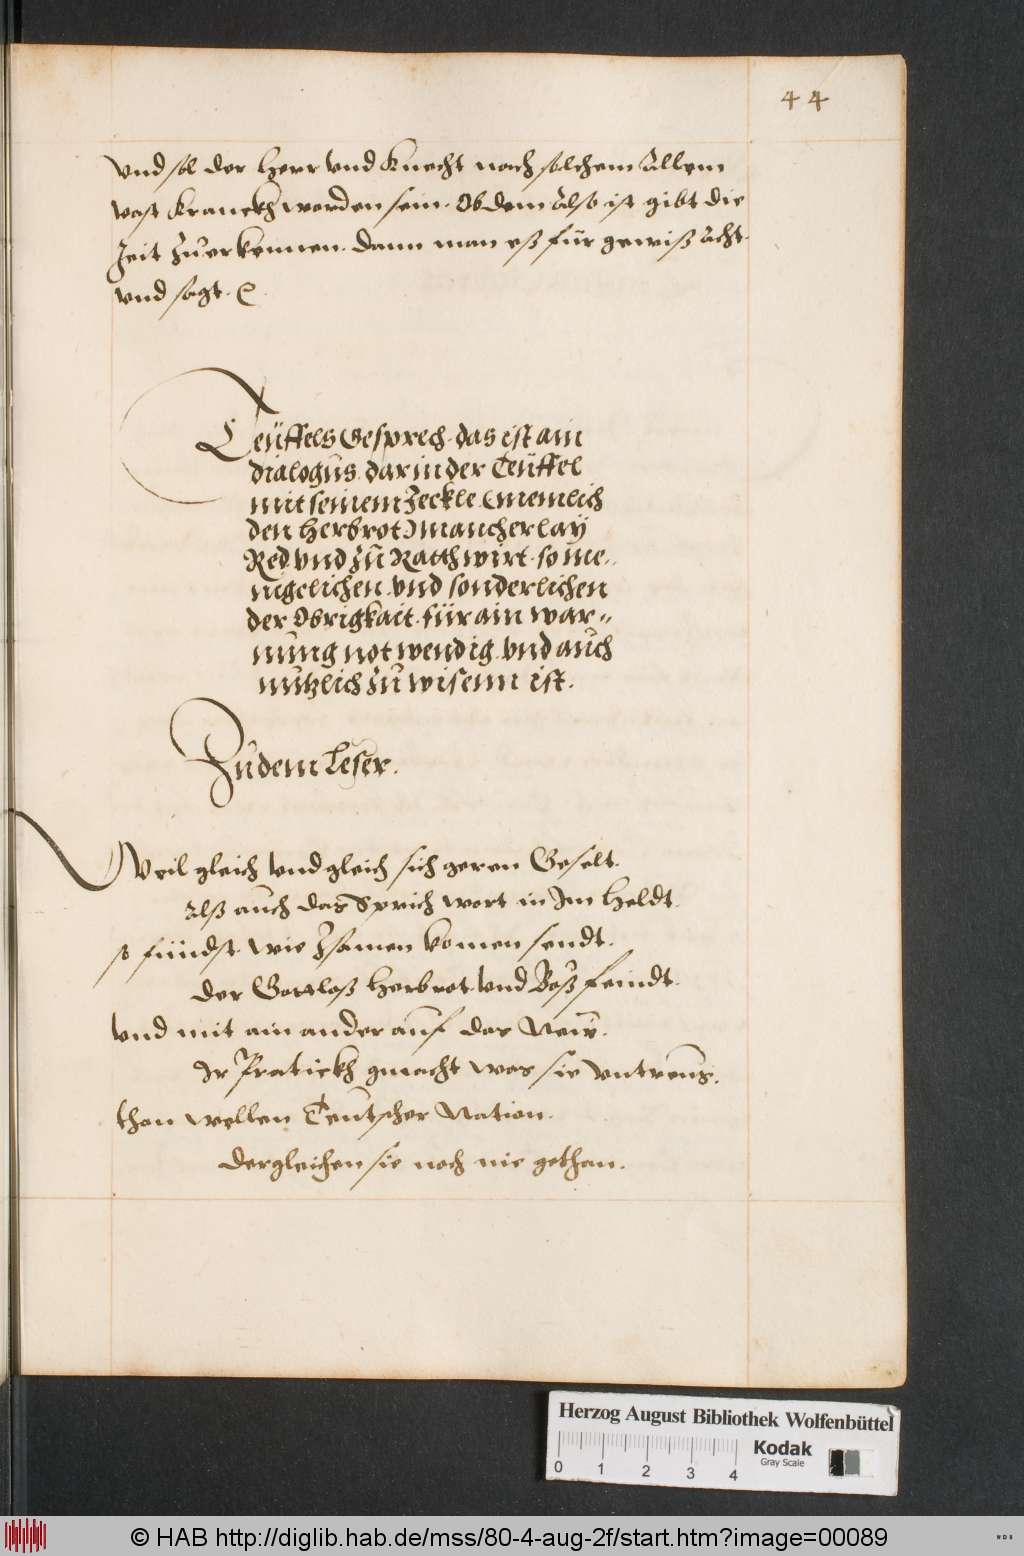 44
vnd sol der Herr vnd Knecht nach solchem allem
vast Kranckh worden sein. Ob dem also ist gibt die
Zeit Zuerkennen. dann man eß für gewiß acht.
vnd sagt.
Teüffels Gesprech. das ist ain
dialogus. darin der Teüffel
mit seinem Jeckle (nemlich
den Herbrot) mancherlay
Red vnd Zu Ratth wirt. so me„
nigelichen. vnd sonderlichen
der Obrigkait. für ain war„
nung notwendig. vnd auch
nutzlich zu wisenn ist.
Zu dem Leser.
Weil gleich vnd gleich sich geren Geselt.
Alß auch das Sprichwort in Im heldt.
so fündst wie Zsamen komen sendt.
der Gottloß Herbrot vnd Böß feindt.
vnd mit ain ander auf das Neu.
Ir Pratickh gmacht was sie vntreus.
than wellen Teutscher Nation.
dergleichen sie noch nie gethan.
Herzog August Bibliothek Wolfenbüttel
Kodak
Gray Scale
0 1 2 3 4
© HAB http://diglib.hab.de/mss/80-4-aug-2f/start.htm?image=00089